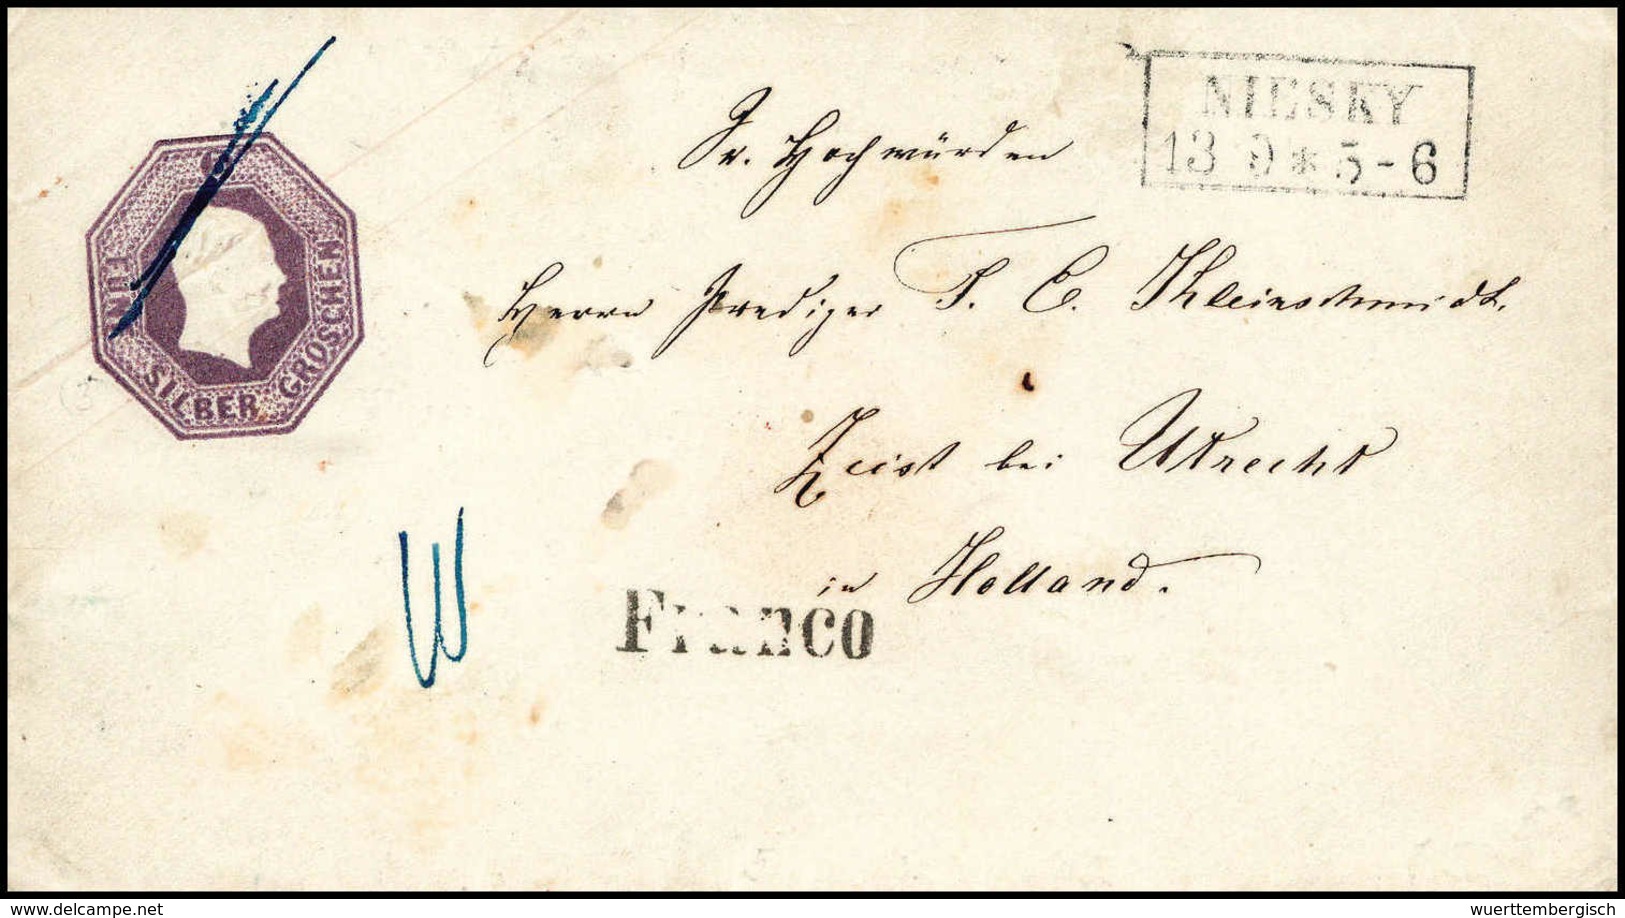 NIESKY
13 9 * 5-6
FÜNF SILBER GROSCHEN
Sr. Hochwürden
Herrn Prediger F. C. Kleinschmidt.
Zeist bei Utrecht
in Holland.
Franco
www.delcampe.net
wuerttembergisch